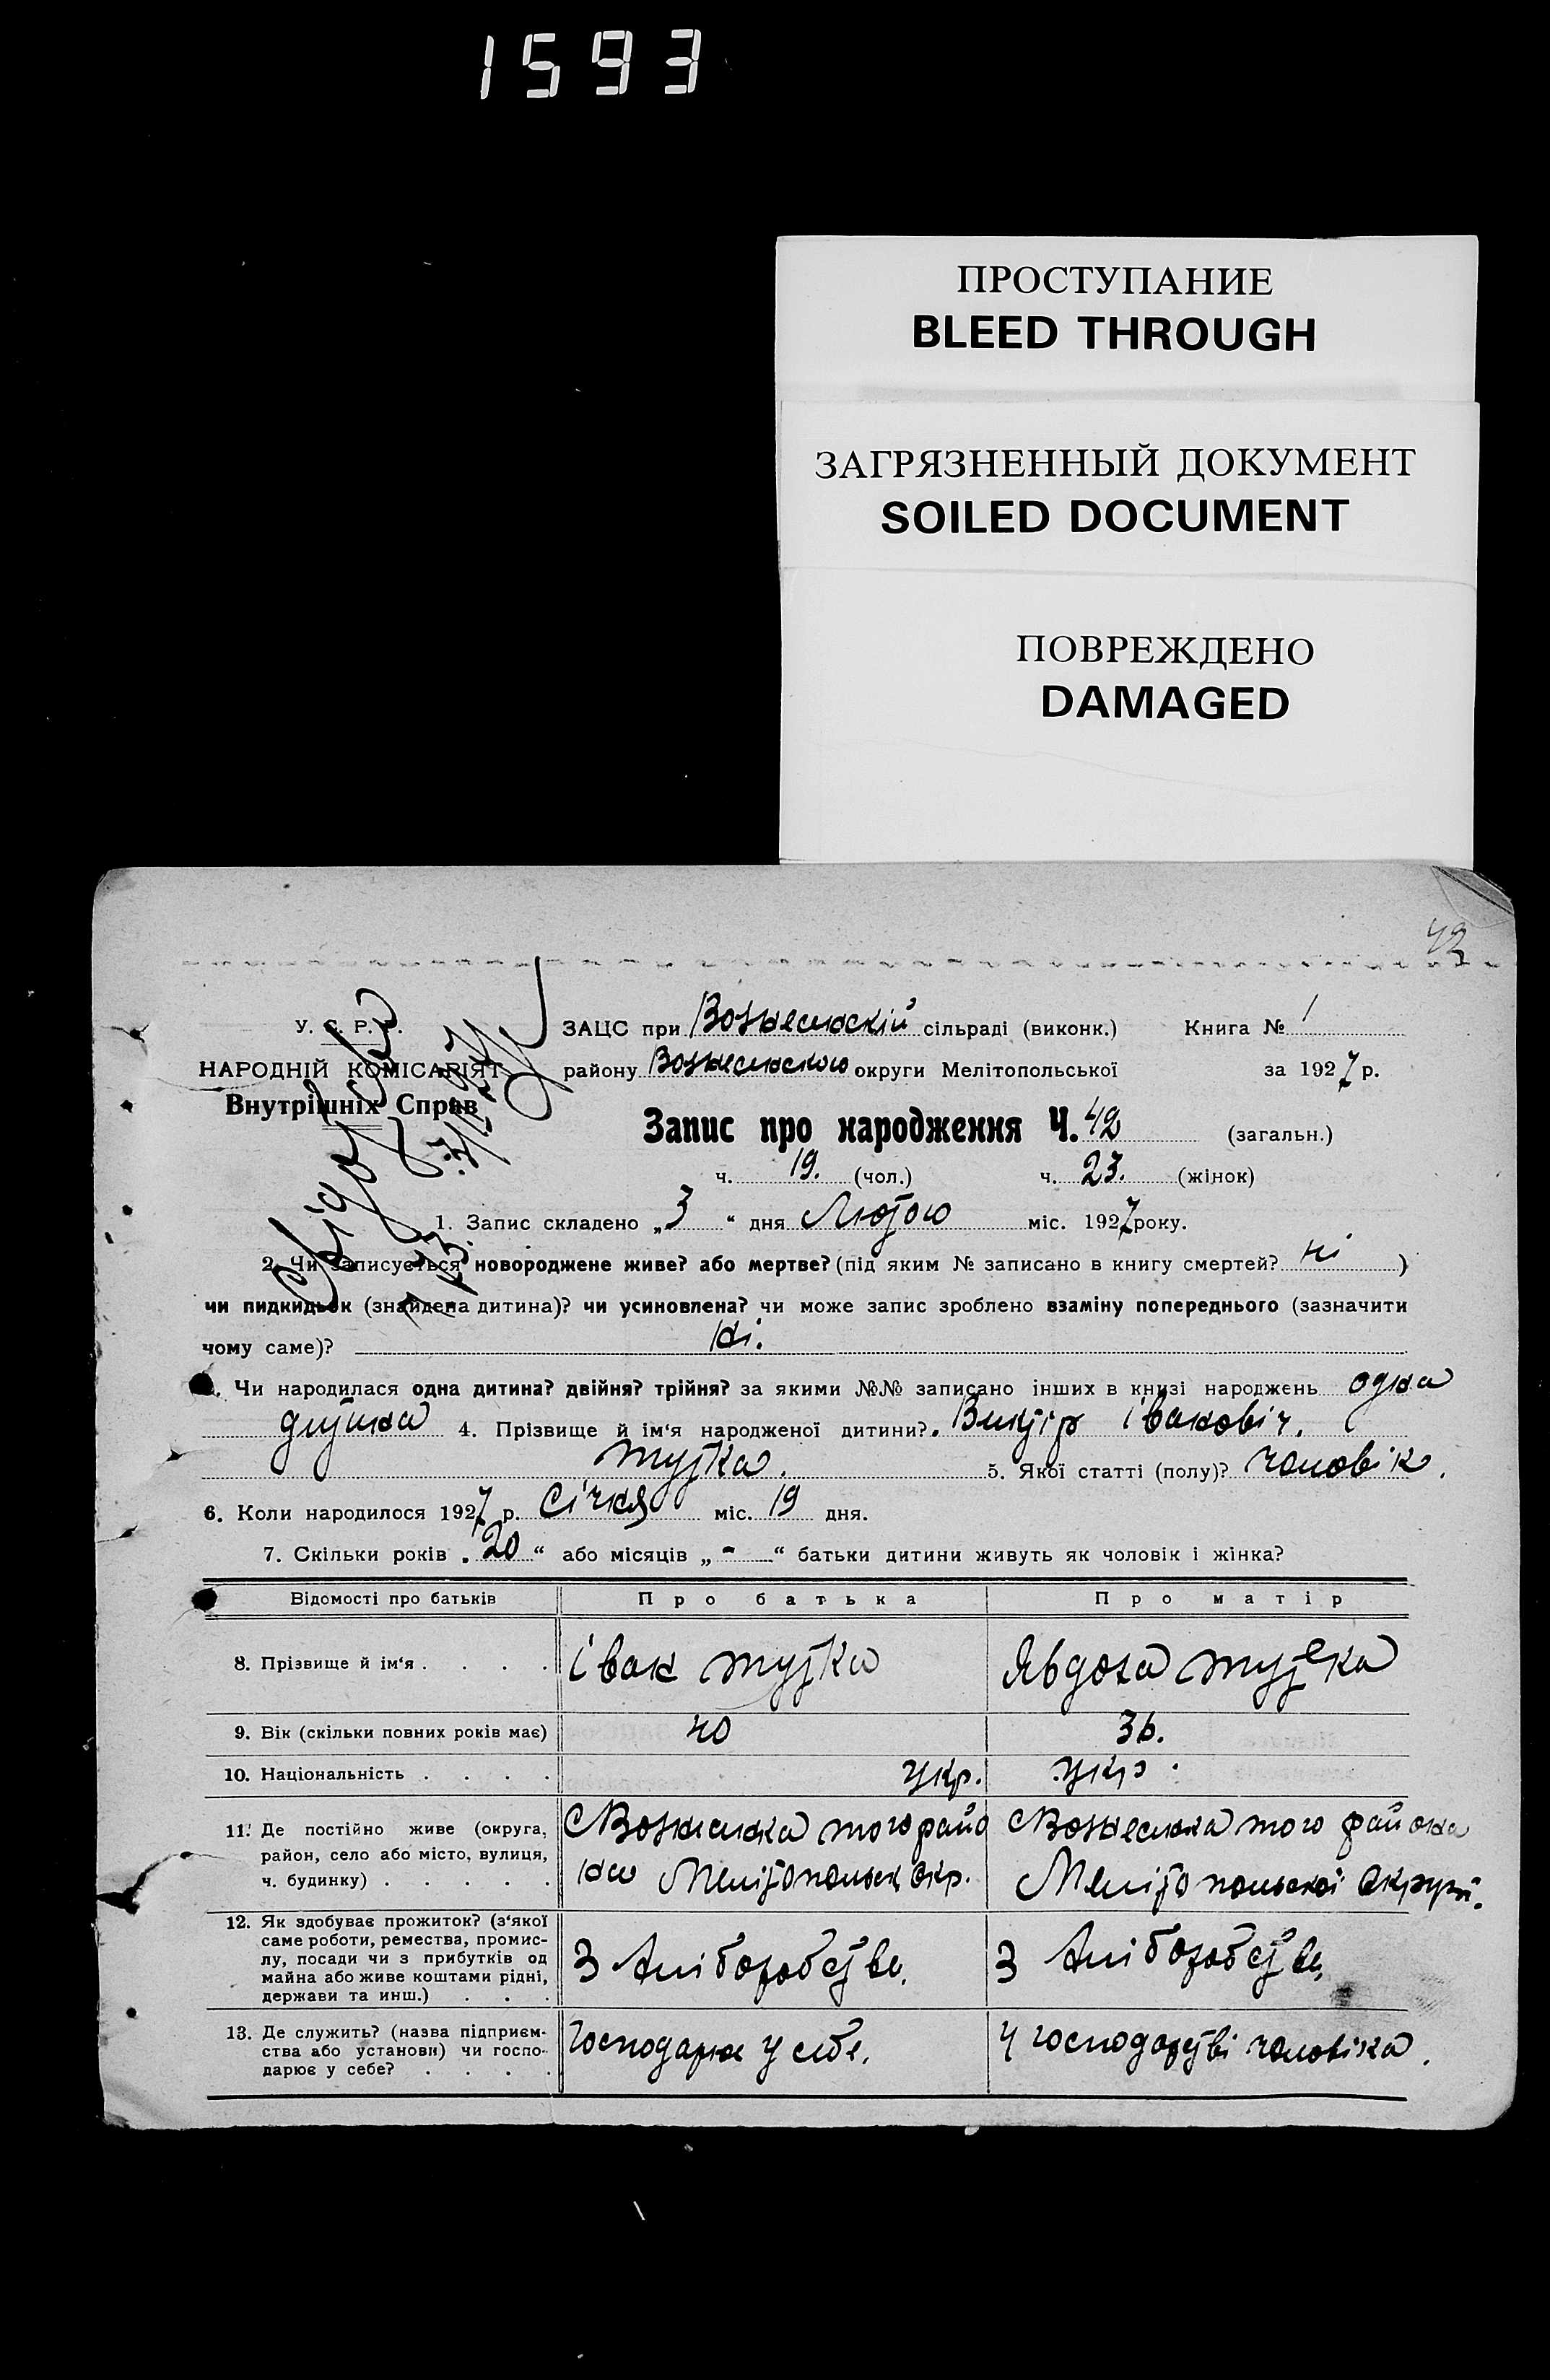 1593
ПРОСТУПАНИЕ
BLEED THROUGH
ЗАГРЯЗНЕННЫЙ ДОКУМЕНТ
SOILED DOCUMENT
ПОВРЕЖДЕНО
DAMAGED
У. С. Р. Р.
НАРОДНІЙ КОМІСАРІЯТ
Внутрішніх Справ
ЗАЦС при Вознесенскій сільраді (виконк.) Книга № 1
району Вознесенского округи Мелітопольської за 1927 р.
Запис про народження Ч. 42 (загальн.)
ч. 19. (чол.) ч. 23. (жінок)
1. Запис складено „3“ дня Лютого міс. 1927 року.
2. Чи записується новороджене живе? або мертве? (під яким № записано в книгу смертей? ні )
чи пидкидьок (знайдена дитина)? чи усиновлена? чи може запис зроблено взаміну попереднього (зазначити
чому саме)? ні.
3. Чи народилася одна дитина? двійня? трійня? за якими №№ записано інших в книзі народжень одна
дитина 4. Прізвище й ім‘я народженої дитини? Віктір Іванович.
тутка. 5. Якої статті (полу)? чоловік.
6. Коли народилося 1927 р. Січня міс. 19 дня.
7. Скільки років „20“ або місяців „-“ батьки дитини живуть як чоловік і жінка?
Відомості про батьків Про батька Про матір
8. Прізвище й ім‘я . . . . Іван тутка Явдоха тутка
9. Вік (скільки повних років має) 40 36.
10. Національність . . . . Укр. Укр.
11. Де постійно живе (округа,
район, село або місто, вулиця,
ч. будинку) . . . . .
С Вознесенка того райо
на Мелітопольск Окр.
С Вознесенка того района
Мелітопольскоі Округи.
12. Як здобуває прожиток? (з‘якої
саме роботи, ремества, промис-
лу, посади чи з прибутків од
майна або живе коштами рідні,
держави та инш.) . . .
З хліборобства.
З хліборобства.
13. Де служить? (назва підприєм-
ства або установи) чи госпо-
дарює у себе? . . . .
Господарює у себе.
У господарстві чоловіка.